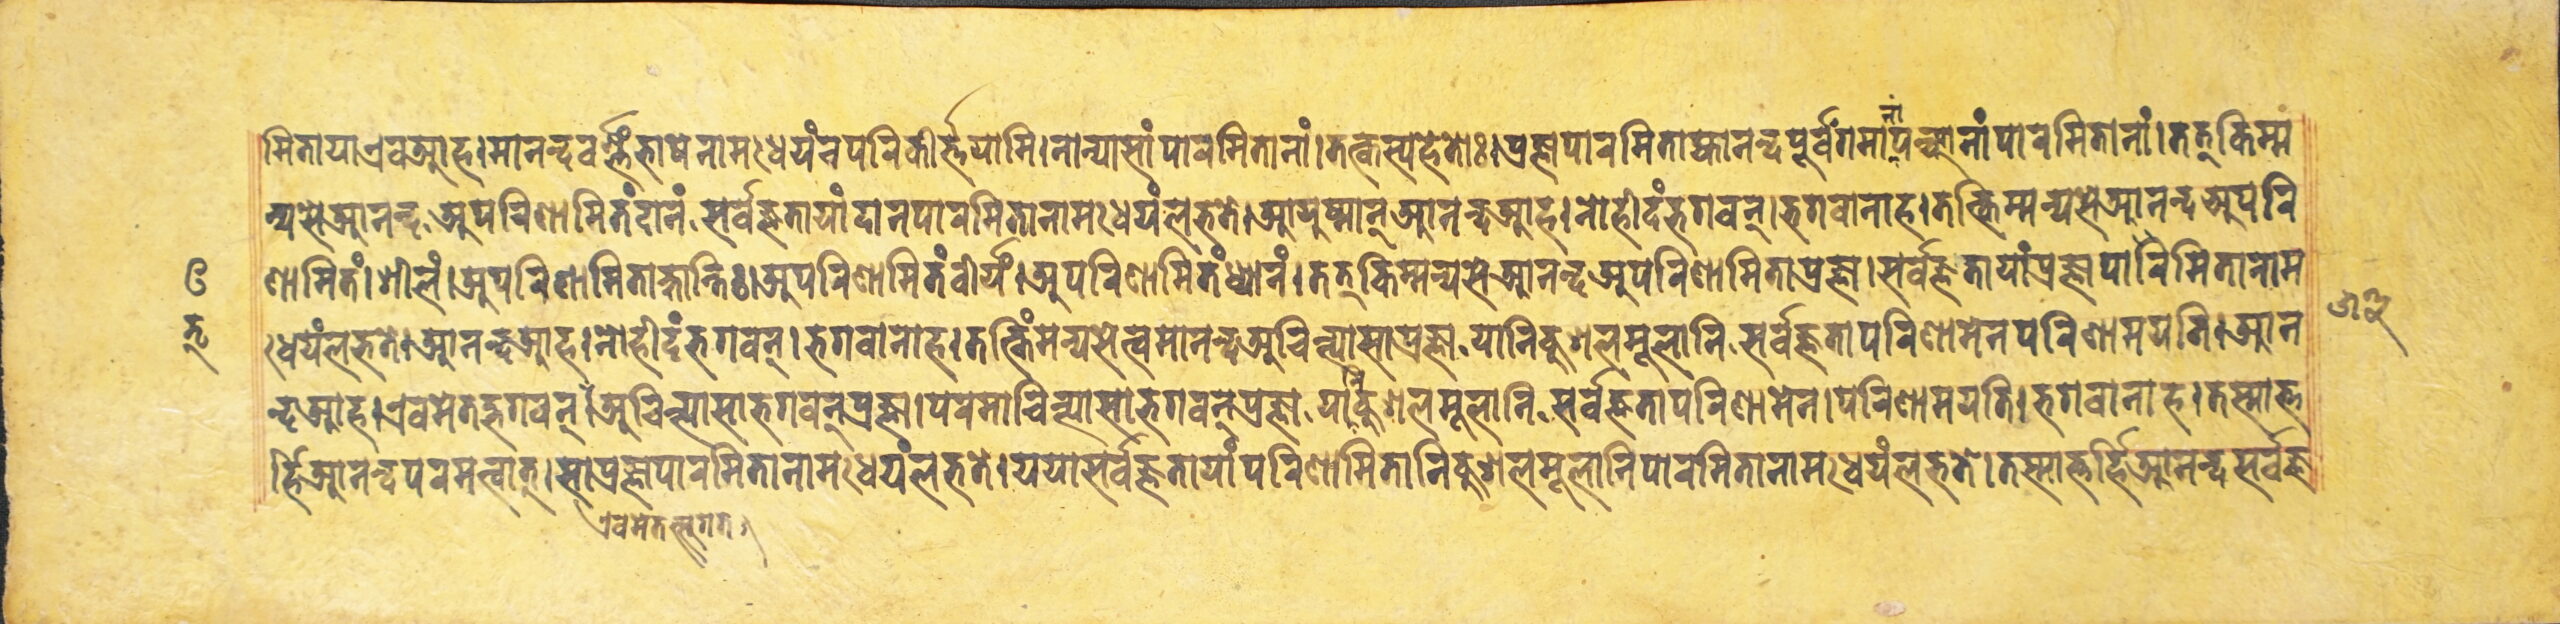 मितायाएवआह।मानन्दवर्ण्णंभाषेनामधेयंनपरिकीर्त्तयामि।नान्यासांपारमितानां।तत्कस्यहेतोः।प्रज्ञापारमिताह्यानन्दपूर्वंगमापञ्चानांपारमितानां।तत्किम्म
न्यसेआनन्द,अपरिणामितंदानं,सर्वज्ञतायांदानपारमितानामधेयंलभते।आयुष्मान्आनन्दआह।नोहीदंभगवन्।भगवानाह।तत्किम्मन्यसेआनन्दअपरि
णामितं।शीलं।अपरिणामिताक्षान्तिः।अपरिणामितंवीर्यं।अपरिणामितंध्यानं।तत्किम्मन्यसेआनन्दअपरिणामिताप्रज्ञा।सर्वज्ञतायांप्रज्ञापारमितानाम
धेयंलभते।आनन्दआह।नोहीदंभगवन्।भगवानाह।तत्किंमन्यसेत्वमानन्दअचिन्त्यासाप्रज्ञा,यानिकुशलमूलानि,सर्वज्ञतापरिणामेनपरिणामयति।आन
न्दआह।एवमेतद्भगवन्।अचिन्त्यासाभगवन्प्रज्ञा।परमाचिन्त्यासाभगवन्प्रज्ञा,यानिकुशलमूलानि,सर्वज्ञतापरिणामेन।परिणामयति।भगवानाह।तस्मात्त
र्हिआनन्दपरमत्वात्।साप्रज्ञापारमितानामधेयंलभते।ययासर्वज्ञतायांपरिणामितानिकुशलमूलानिपारमितानामधेयंलभते।तस्मात्तर्हिआनन्दसर्वज्ञ
एवमेतत्सुगत